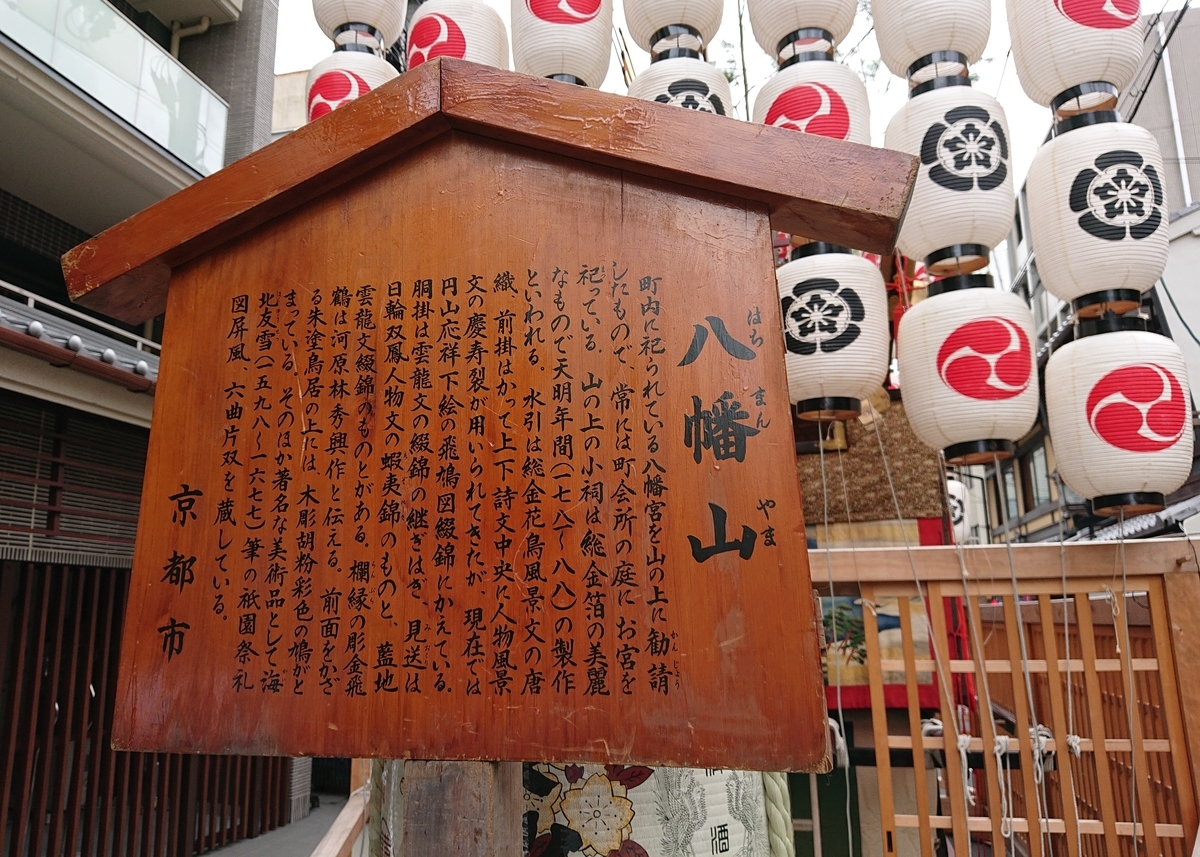 八幡山
はち まん やま
町内に祀られている八幡宮を山の上に勧請
かん じょう
したもので、常には町会所の庭にお宮を
祀っている。山の上の小祠は総金箔の美麗
なもので天明年間(一七八一〜八八)の製作
といわれる。水引は総金花鳥風景文の唐
織、前掛はかって上下詩文中央に人物風景
文の慶寿裂が用いられてきたが、現在では
円山応祥下絵の飛鳩図綴錦にかえている。
胴掛は雲龍文の綴錦の継ぎはぎ、見送は
み おくり
日輪双鳳人物文の蝦夷錦のものと、藍地
雲龍文綴錦のものとがある。欄縁の彫金飛
鶴は河原林秀興作と伝える。前面をかざ
る朱塗鳥居の上には、木彫胡粉彩色の鳩がと
まっている。そのほか著名な美術品として海
北友雪(一五九八〜一六七七)筆の祇園祭礼
図屏風、六曲片双を蔵している。
京都市
酒